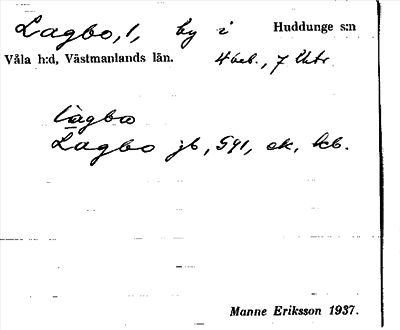 Lagbo, 1, by i Huddunge s:n
Våla h:d, Västmanlands län. 4 geb., 7 lhtr
làgbo
Lagbo jb, 591, ek, kb.
Manne Eriksson 1937.